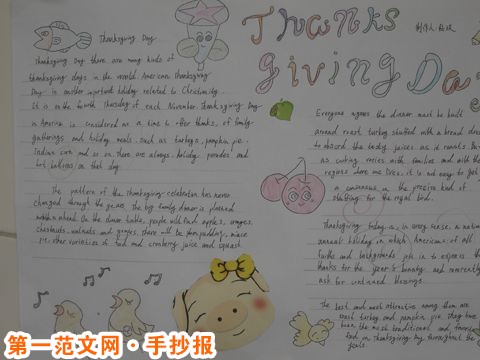 Thanks
制作人:
Giving Da
Thanksgiving Day
Thanksgiving Day there are many kinds of
thanksgiving days in the world. American Thanksgiving
Day is another important holiday related to Christianity.
It is on the fourth Thursday of each November. Thanksgiving Day
in America is considered as a time to offer thanks, of family
gatherings and holiday meals. such as turkeys, pumpkin pie.
Indian corn and so on. There are always holiday parades and
hot balloons on that day.
The pattern of the Thanksgiving celebration has never
changed through the years. The big family dinner is planned
months ahead. On the dinner table, people will find apples, oranges,
chestnuts, walnuts and grapes, there will be plum pudding, mince
pie, other varieties of food and cranberry juice and squash.
Everyone agrees the dinner must be built
around roast turkey stuffed with a bread dres
to absorb the tasty juices as it roasts. Bu
as cooking varies with families and with the
regions where one lives, it is not easy to get
a consensus on the precise kind of
stuffing for the royal bird.
Thanksgiving today is, in every sense, a nation
annual holiday in which Americans of all
faiths and backgrounds join in to express th
thanks for the year's bounty and reverently
ask for continued blessings.
The best and most attractive among them are
roast turkey and pumpkin pie. they have
been the most traditional and favorite
food on Thanksgiving Day throughout the
years
第一范文网·手抄报